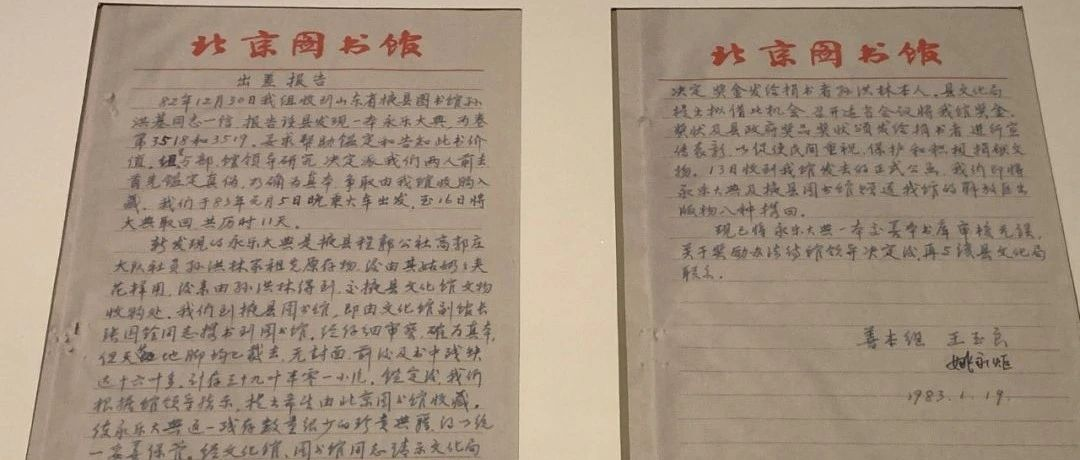 北京图书馆
出差报告
82年12月30日我组收到山东省掖县图书馆孙
洪基同志一信，报告该县发现一本永乐大典，为卷
第3518和3519。要求帮助鉴定和告知此书价
值。组与部、馆领导研究，决定派我们两人前去
首先鉴定真伪，如确为真本，争取由我馆收购入
藏。我们于83年元月5日晚乘火车出发，至16日将
大典取回，共历时11天。
新发现的永乐大典是掖县程郭公社高郭庄
大队社员孙洪林家祖先原存物，后由其姑奶夹
花样用，后来由孙洪林得到，交掖县文化馆文物
收购处。我们到掖县图书馆，即由文化馆副馆长
张国馆同志携书到图书馆。经仔细审察，确为真本，
但天地脚均已裁去，无封面，前后及书中残缺
达十六叶多，计存三十九叶半零一小片。鉴定后，我们
根据馆领导指示，提出希望由北京图书馆收藏。
使永乐大典这一残存数量很少的珍贵典籍得以统
一妥善保管。经文化馆、图书馆同志请示文化局
北京图书馆
决定，奖金发给捐书者孙洪林本人。县文化局
提出拟借此机会，召开适当会议将我馆奖金、
奖状及县政府奖品奖状颁发给捐书者，进行宣
传表彰，以促使民间重视、保护和积极捐献文
物。13日收到我馆发去的正式公函，我们即将
永乐大典及掖县图书馆赠送我馆的解放区出
版物八种携回。
现已将永乐大典一本交善本书库审核无误，
关于奖励办法待馆领导决定后，再与该县文化局
联系。
善本组 王玉良
姚永炬
1983.1.19.